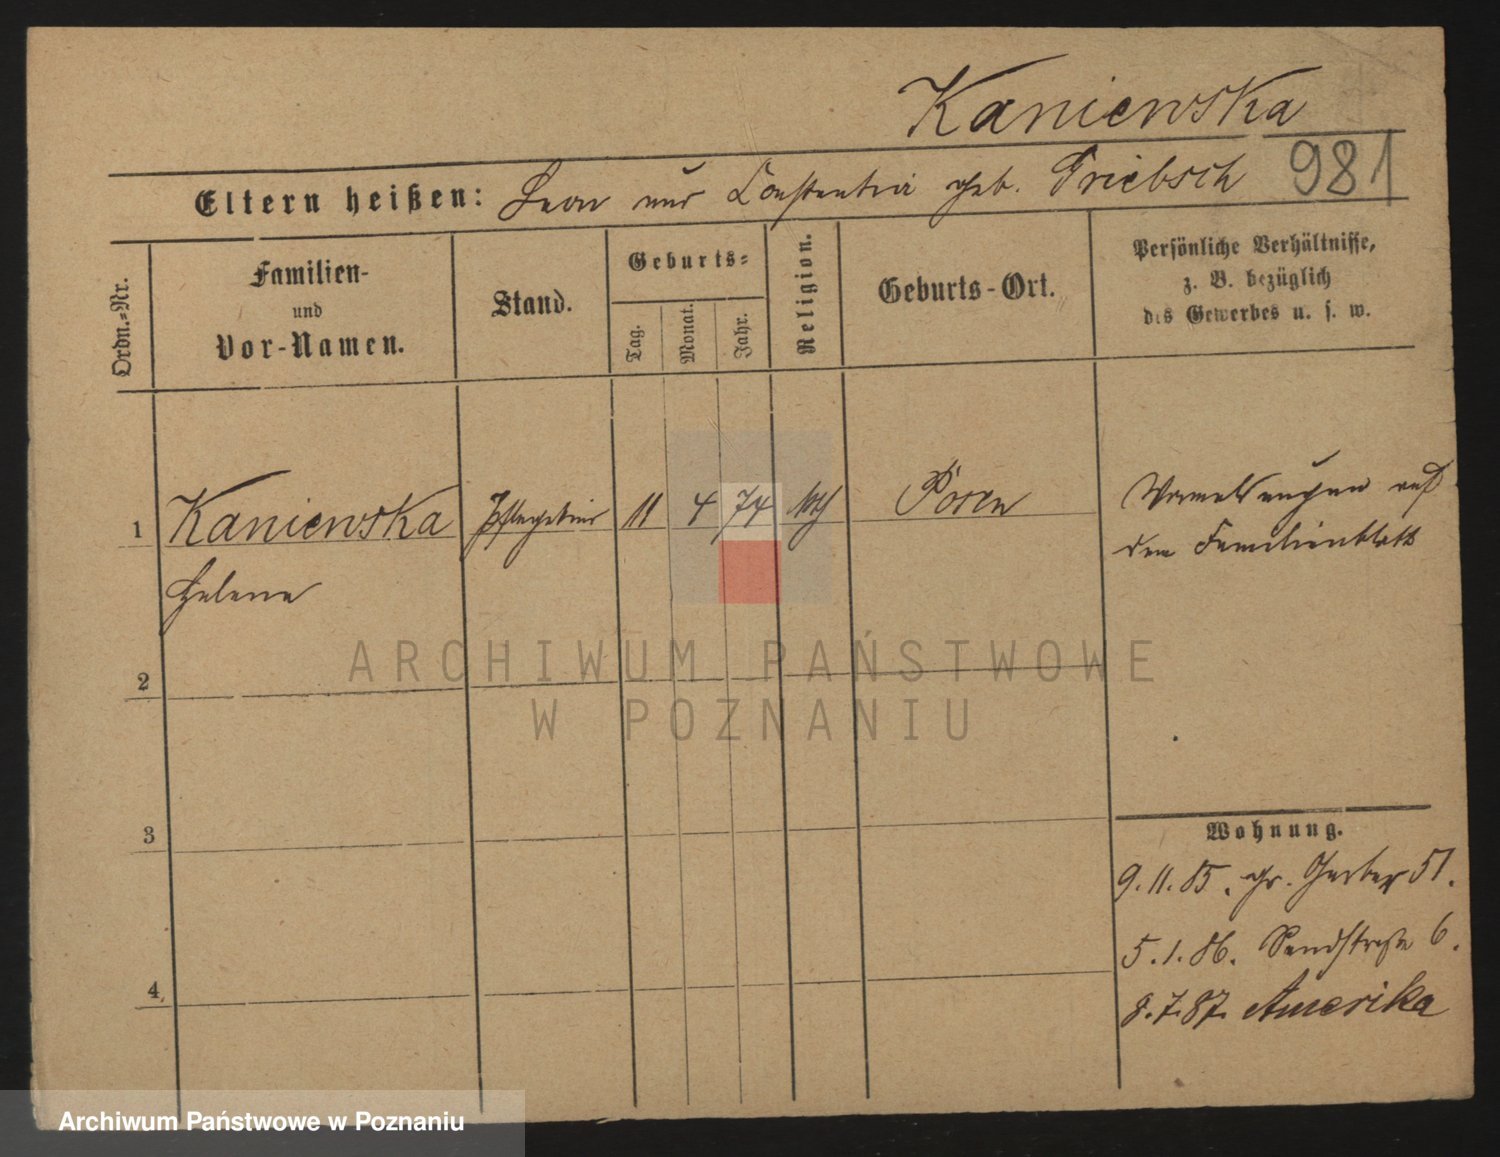 Kaniewska
981
Eltern heißen: Leon und Constantia geb. Priebsch
Ordn.-Nr.
Familien-
und
Vor-Namen.
Stand.
Geburts-
Tag.
Monat.
Jahr.
Religion.
Geburts-Ort.
Persönliche Verhältnisse,
z. B. bezüglich
des Gewerbes u. s. w.
1 Kaniewska 11 4 74 kth Posen
Helene
Anmeldungen auf
dem Familienblatt
2
3
4
Wohnung.
9. 11. 85. gr. Gerber 51.
5. 1. 86. Sandstraße 6.
8. 7. 87. Amerika
ARCHIWUM PAŃSTWOWE
W POZNANIU
Archiwum Państwowe w Poznaniu